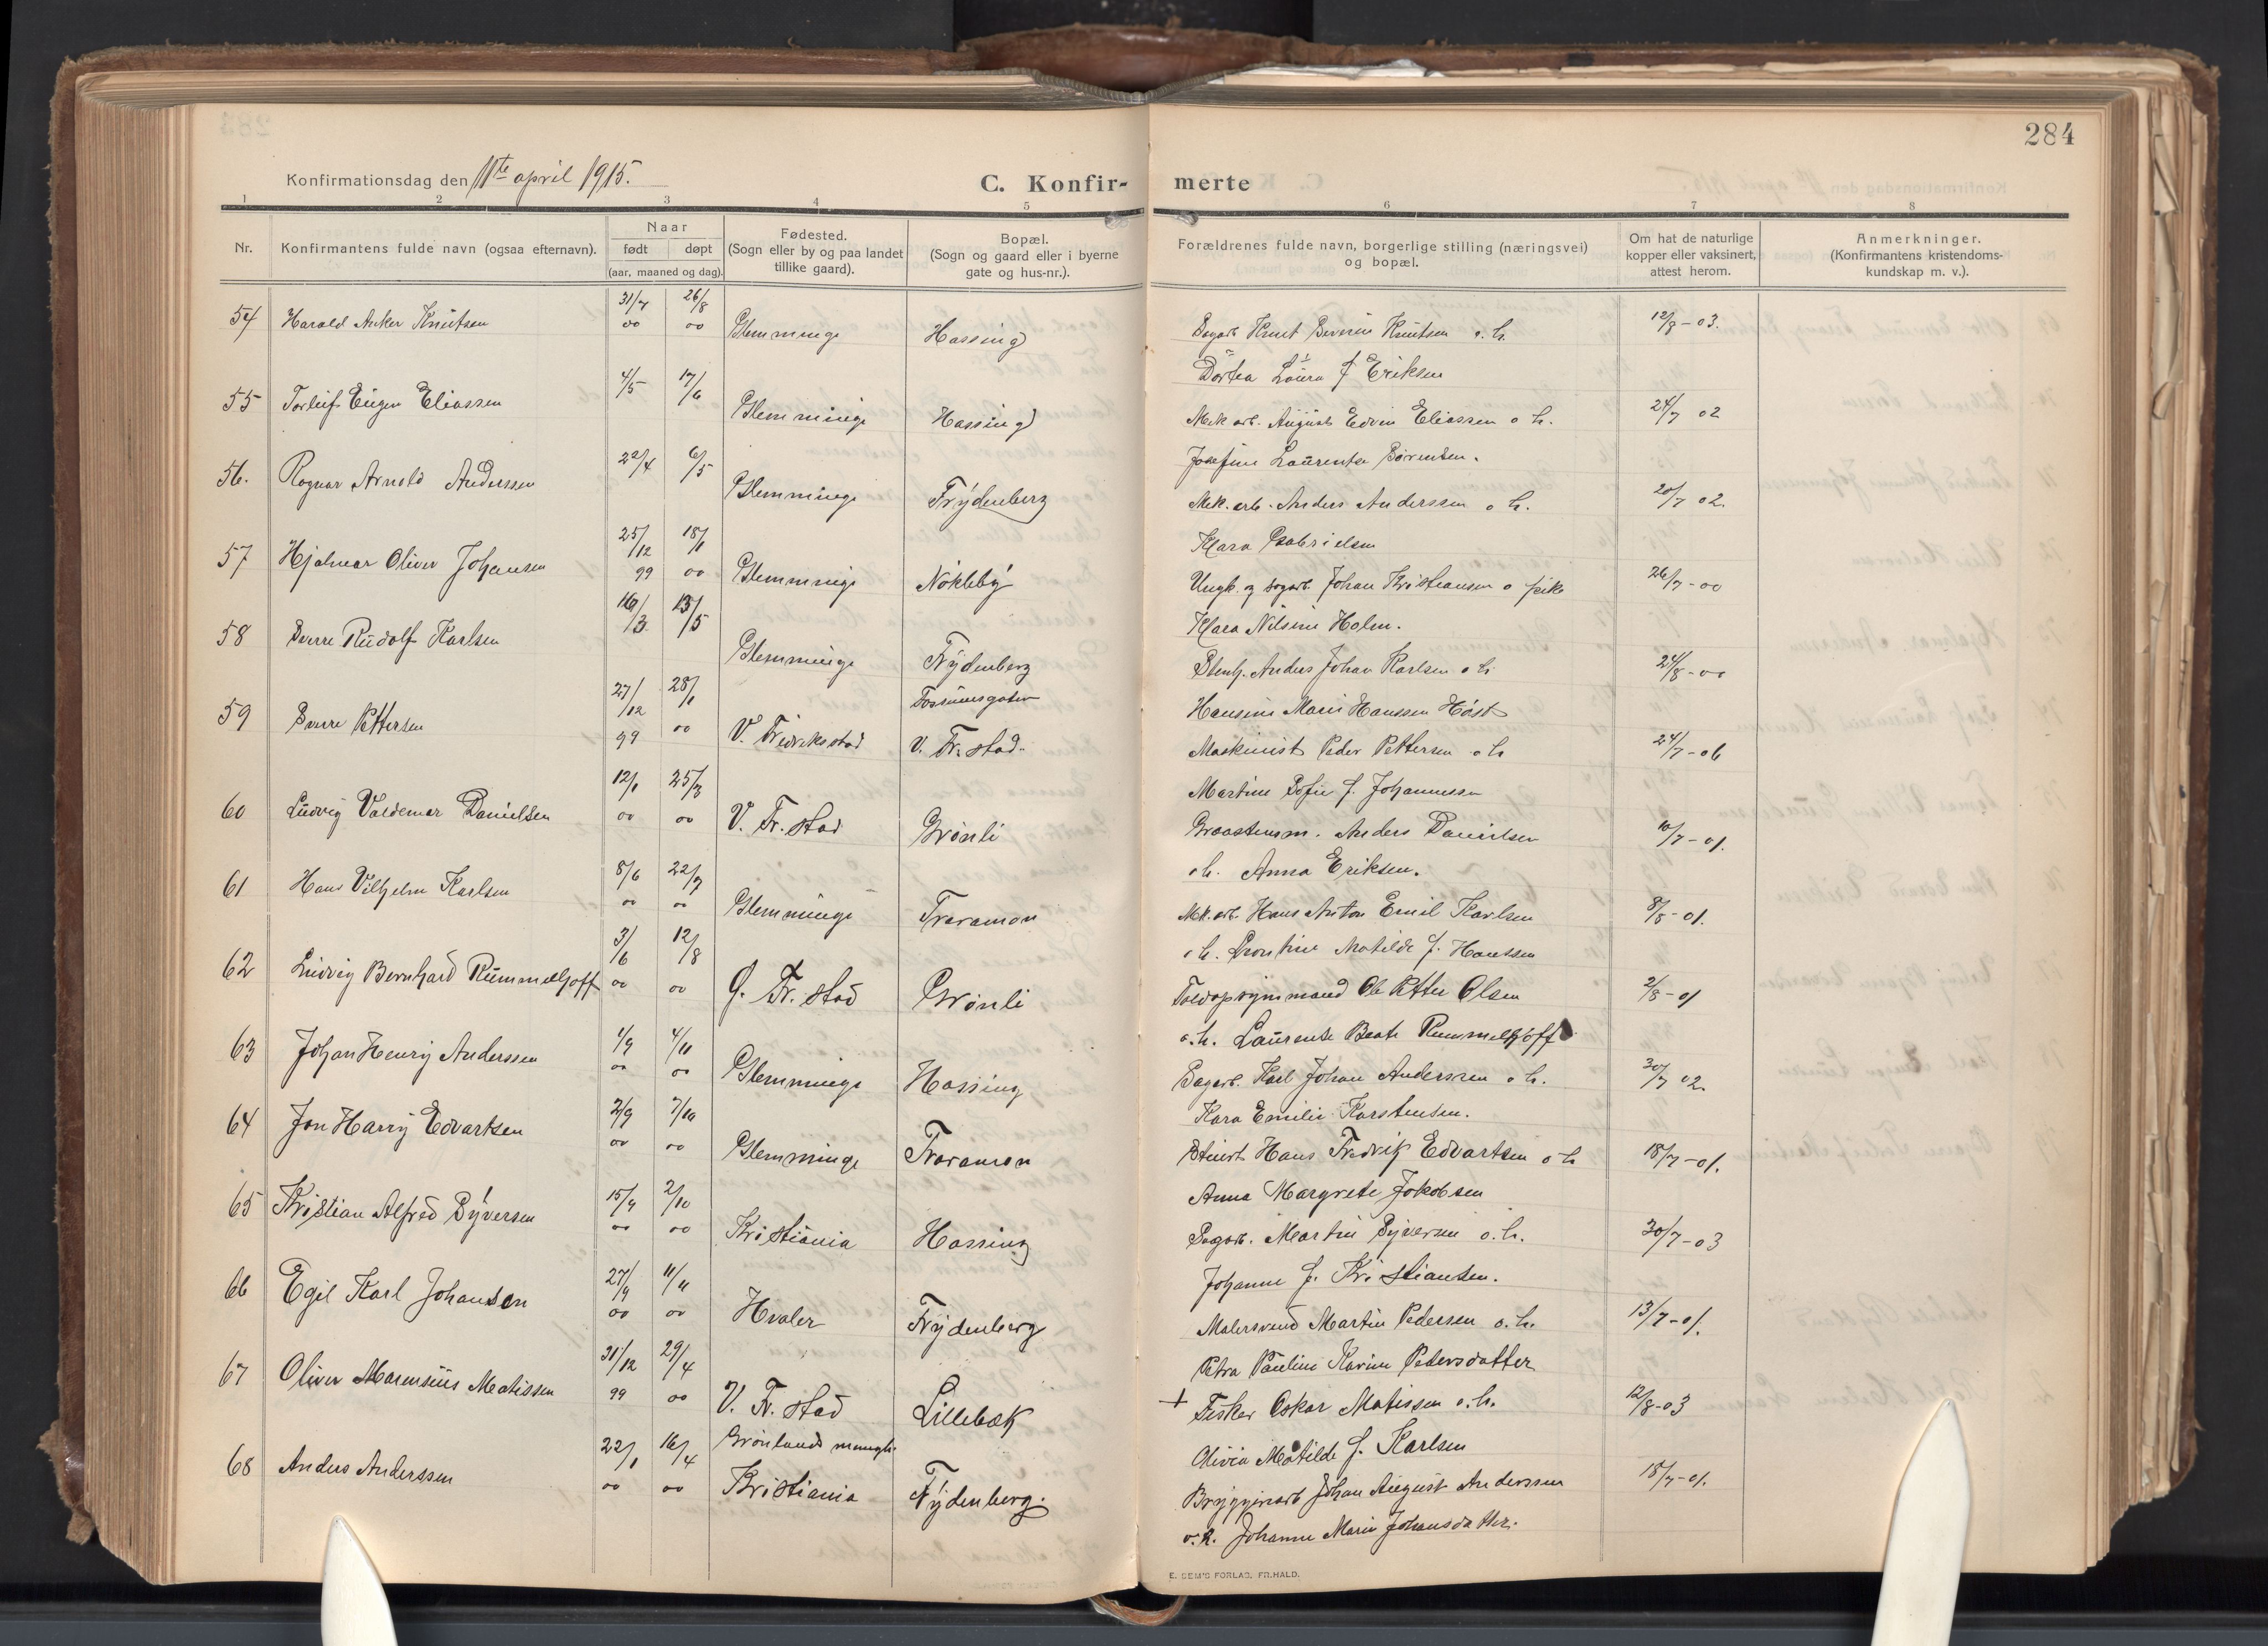 284
Konfirmationsdag den 11te april 1915.
C. Konfir-merte
1 2 3 4 5 6 7 8
Nr.
Konfirmantens fulde navn (ogsaa efternavn).
Naar
født døpt
(aar, maaned og dag).
Fødested.
(Sogn eller by og paa landet
tillike gaard).
Bopæl.
(Sogn og gaard eller i byerne
gate og hus-nr.).
Forældrenes fulde navn, borgerlige stilling (næringsvei)
og bopæl.
Om hat de naturlige
kopper eller vaksinert,
attest herom.
Anmerkninger.
(Konfirmantens kristendoms-
kundskap m. v.).
54 Harald Anker Knutsen 31/7 00 26/8 00 Glemminge Hassing Sagarb. Knut Severin Knutsen o. h. 12/8 - 03.
Dortea Laura f Eriksen
55 Torleif Eugen Eliassen 4/5 17/6 Glemminge Hassing Mek arb. August Edvin Eliassen o h. 24/7 02
Josefine Laurentse Sørensen.
56. Ragnar Arnold Anderssen 22/4 6/5 Glemminge Frydenberg Mek. arb. Anders Anderssen o h. 20/7 02.
Klara Gabrielsen
57 Hjalmar Oliver Johansen 25/12 99 18/1 00 Glemminge Nøkleby Ungk. og sagarb. Johan Kristiansen o pike 26/7 - 00
Klara Nilsine Holm.
58 Sverre Rudolf Karlsen 16/3 13/5 Glemminge Frydenberg Stenh. Anders Johan Karlsen o h 24/8 - 00
Hansine Marie Hanssen Høst
59 Sverre Pettersen 27/12 99 28/1 00 V. Fredriksstad Fossumsgaten
V. Fr. stad. Maskinist Peder Pettersen o h 24/7 - 06
Martine Sofie f. Johannessen
60 Ludvig Valdemar Danielsen 12/1 00 25/3 00 V. Fr. stad Grønli Graastensm. Anders Danielsen 10/7 - 01.
o h. Anna Eriksen.
61 Hans Vilhjelm Karlsen 8/6 00 22/7 00 Glemminge Traramoen Mek. arb. Hans Anton Emil Karlsen 8/8 - 01.
o h. Leontine Matilde f. Hanssen
62 Ludvig Bernhard Rummelhoff 3/6 00 12/8 00 Ø. Fr. stad Grønli Toldopsynsmand Ole Petter Olsen 2/8 - 01
o. h. Laurentse Beate Rummelhoff
63 Johan Henry Anderssen 1/9 00 4/11 00 Glemminge Hassing Sagarb. Karl Johan Anderssen o h. 30/7 02.
Kara Emilie Karstensen.
64 Jon Harry Edvartsen 2/9 00 7/10 00 Glemminge Traramoen Stuert Hans Fredrik Edvartsen o h 18/7 - 01.
Anna Margrete Jakobsen
65 Kristian Alfred Syversen 15/9 00 2/10 00 Kristiania Hassing Sagarb. Martin Syversen o. h. 30/7 - 03
Johanne f. Kristiansen.
66 Egil Karl Johansen 27/9 00 11/11 00 Hvaler Frydenberg Malersvend Martin Pedersen o. h. 13/7 - 01.
Petra Pauline Karine Petersdatter
67 Oliver Marensius Matissen 31/12 99 29/4 00 V. Fr. stad Lillebæk + Fisker Oskar Matissen o. h. 12/8 - 03
Olivia Matilde f. Karlsen
68 Anders Anderssen 22/1 00 16/4 00 Grønlands mengh.
Kristiania Frydenberg. Bryggeriarb Johan August Anderssen 18/7 - 01.
o. h. Johanne Marie Johansdatter.
E. SEM'S FORLAG, FR.HALD.